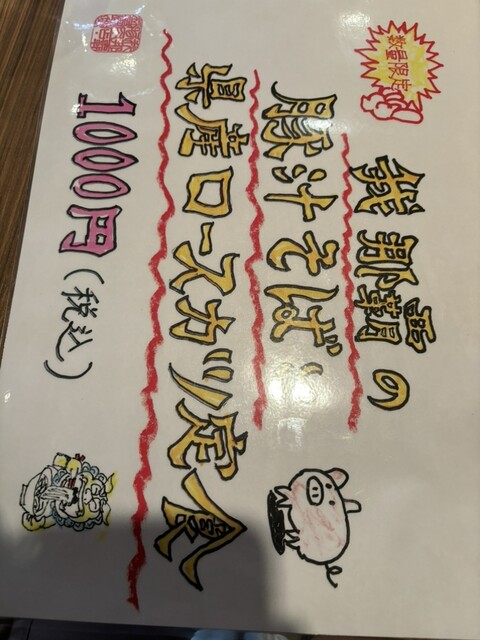 数量限定
我那覇の
豚汁そば
県産ロースカツ定食
1000円(税込)